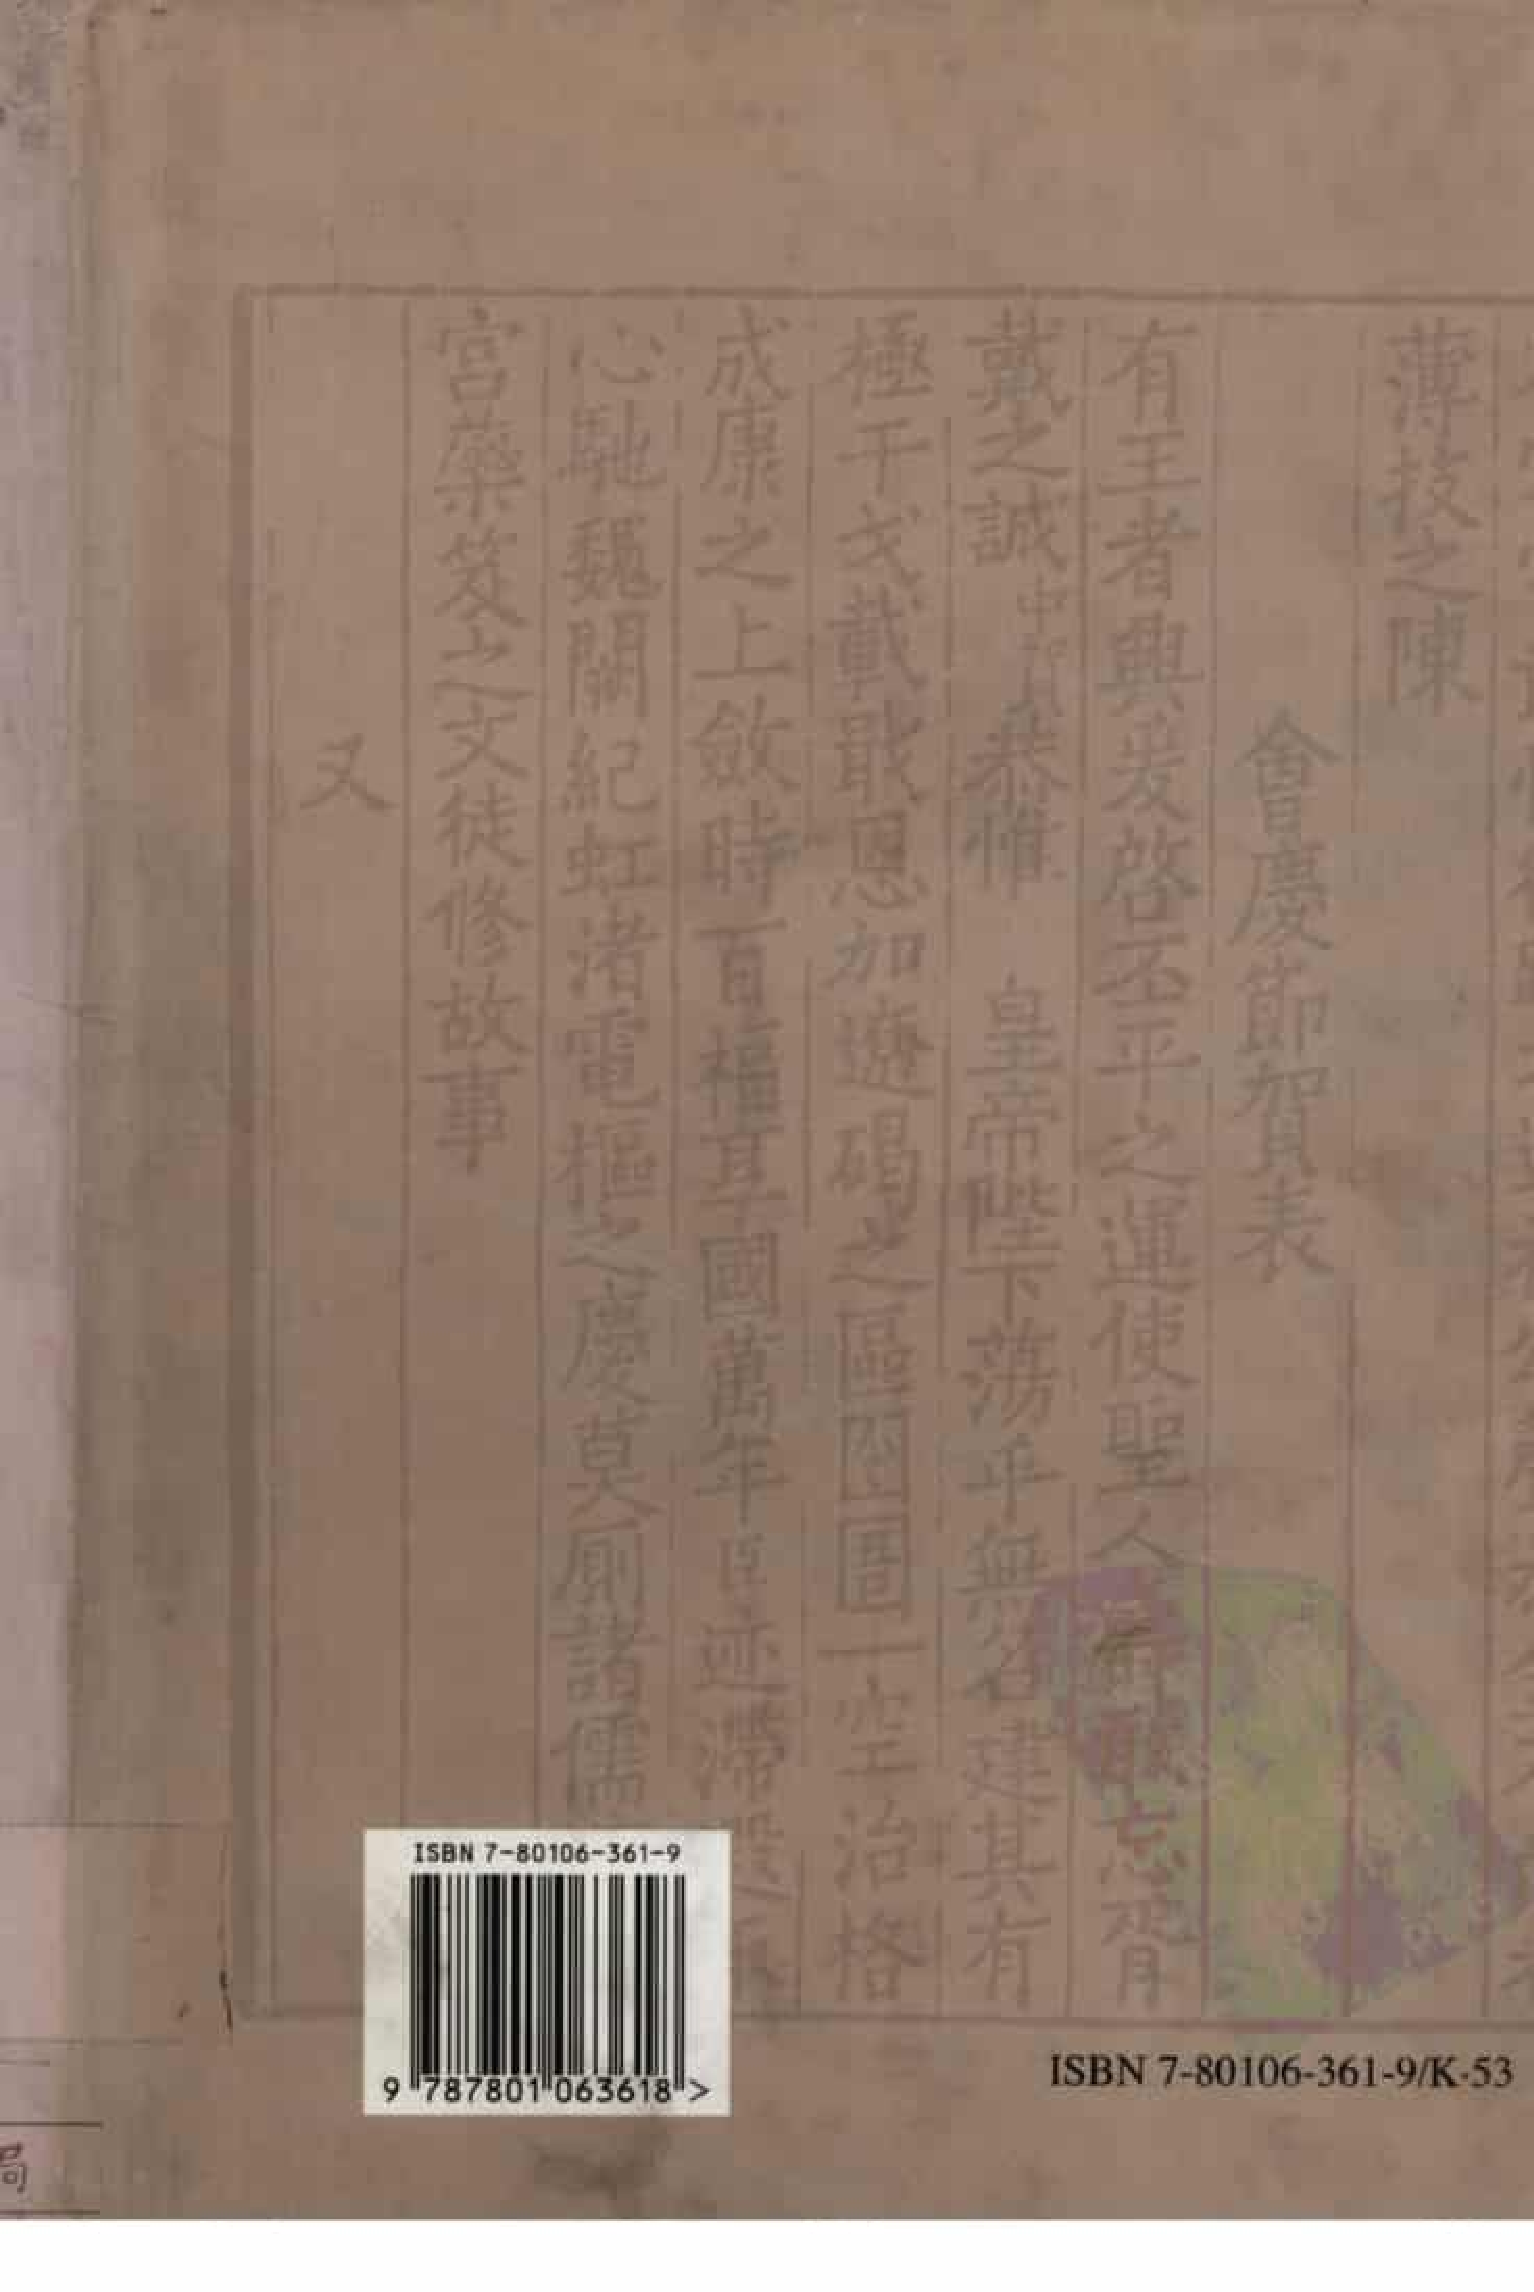 薄技之陳
會慶節賀表
有王者興爰啓丕平之運使聖人壽敢忘胥
戴之誠中賀恭惟 皇帝陛下蕩乎無名建其有
極干戈載戢恩加遼碣之區囹圄一空治格
成康之上斂時百福享國萬年臣迹滯
心馳魏闕紀虹渚電樞之慶莫厠諸儒
宮藥笈之文徒修故事
又
ISBN 7-80106-361-9
9 787801 063618 >
ISBN 7-80106-361-9/K·53
局